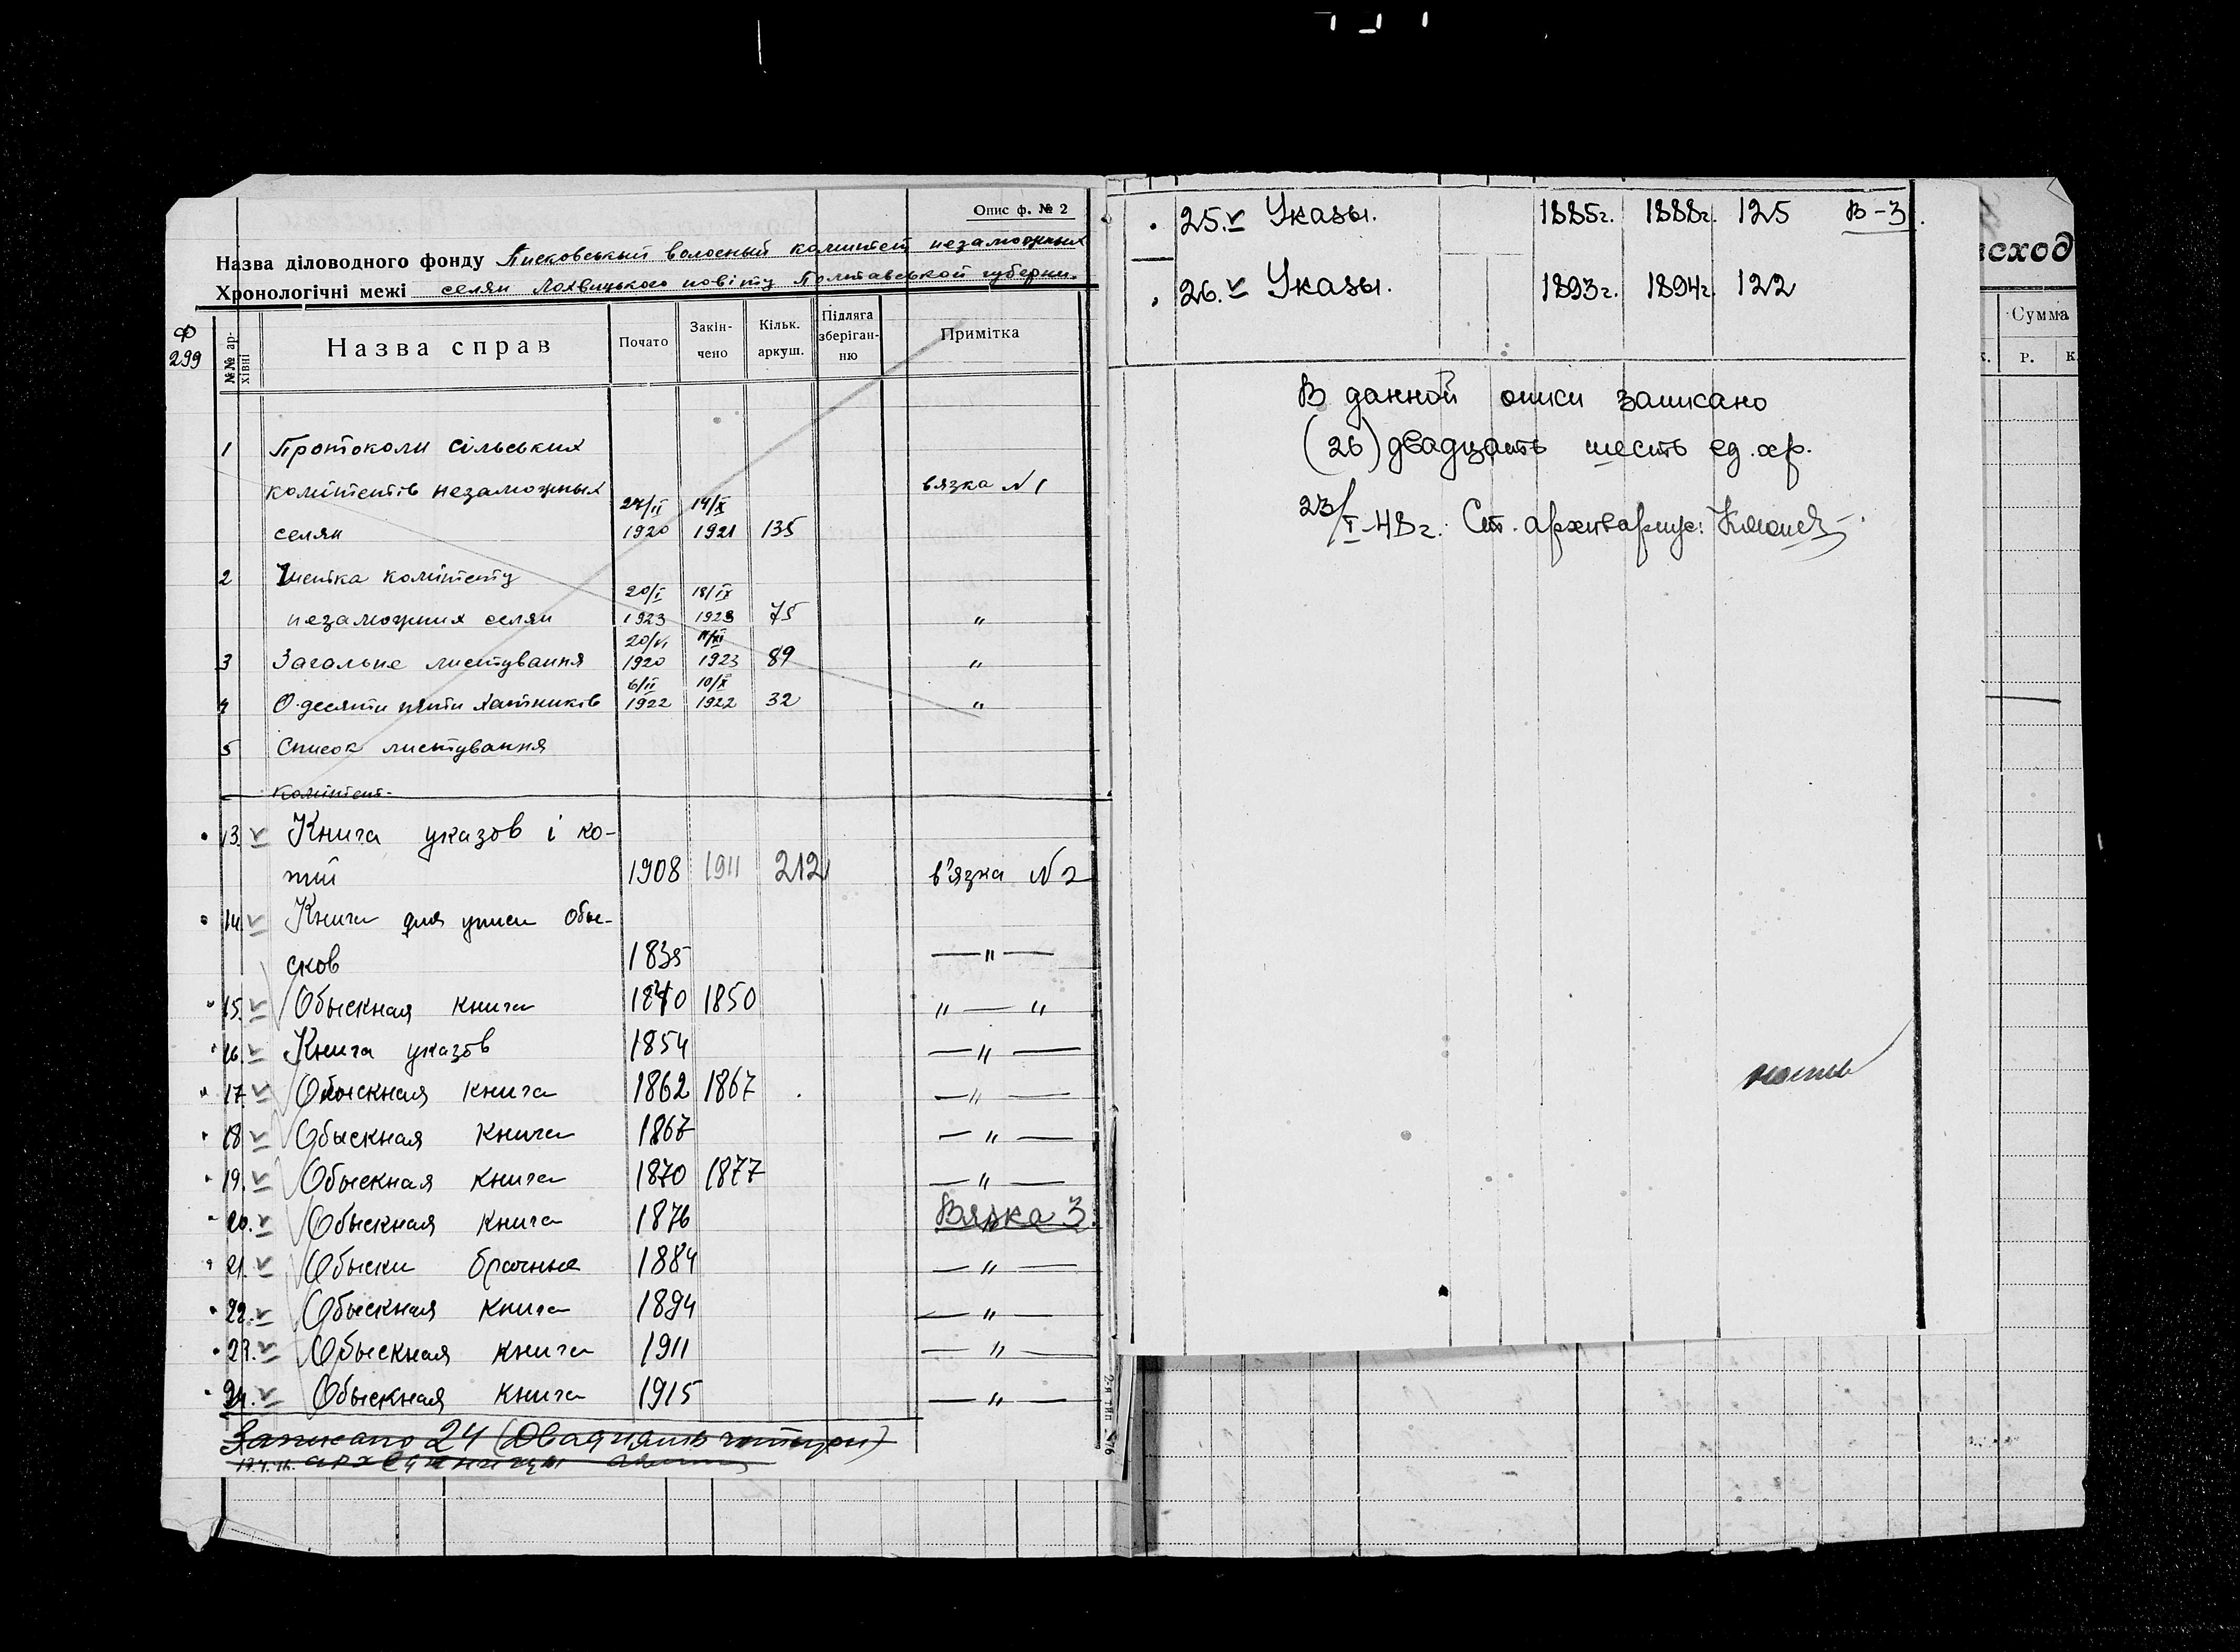 Опис ф. № 2
Назва діловодного фонду Писковський волосный комітет незаможных
Хронологічні межі селян Лохвицького повіту Полтавськой губерни.
Ф
299
№№ ар-
хівні
Назва справ
Почато
Закін-
чено
Кільк.
аркуш.
Підляга
зберіган-
ню
Примітка
1 Протоколи сільських
комітетів незаможных вязка №1
24/II 14/X
селян 1920 1921 135
2 комітету
20/I 18/IX
незаможних селян 1923 1923 75 "
20/VI 11/XI
3 Загальне листування 1920 1923 89 "
6/II 10/X
4 О десяти пяти хатників 1922 1922 32 "
5 Список листування
комітет-
13. v Книга указов і ко-
пій 1908 1911 212 в'язка №2
14. v Книга для описи обы-
сков 1835 — " —
15. v Обыскная книга 1840 1850 " — "
16. v Книга указов 1854 — " —
17. v Обыскная книга 1862 1867 — " —
18 v Обыскная книга 1867 — " —
19. v Обыскная книга 1870 1877 — " —
20. v Обыскная книга 1876 Вязка 3.
21. v Обыски брачные 1884 — " —
22. v Обыскная книга 1894 — " —
23. v Обыскная книга 1911 — " —
24. v Обыскная книга 1915 — " —
Записано 24 (Двадцять чотири)
25. v Указы. 1885г. 1888г. 125 В-3.
26. v Указы. 1893г. 1894г. 122
В данной описи записано
(26) двадцать шесть ед. хр.
23/I-48г. Ст. архивариус:
исход
Сумма
к. Р. К.
2-я тип